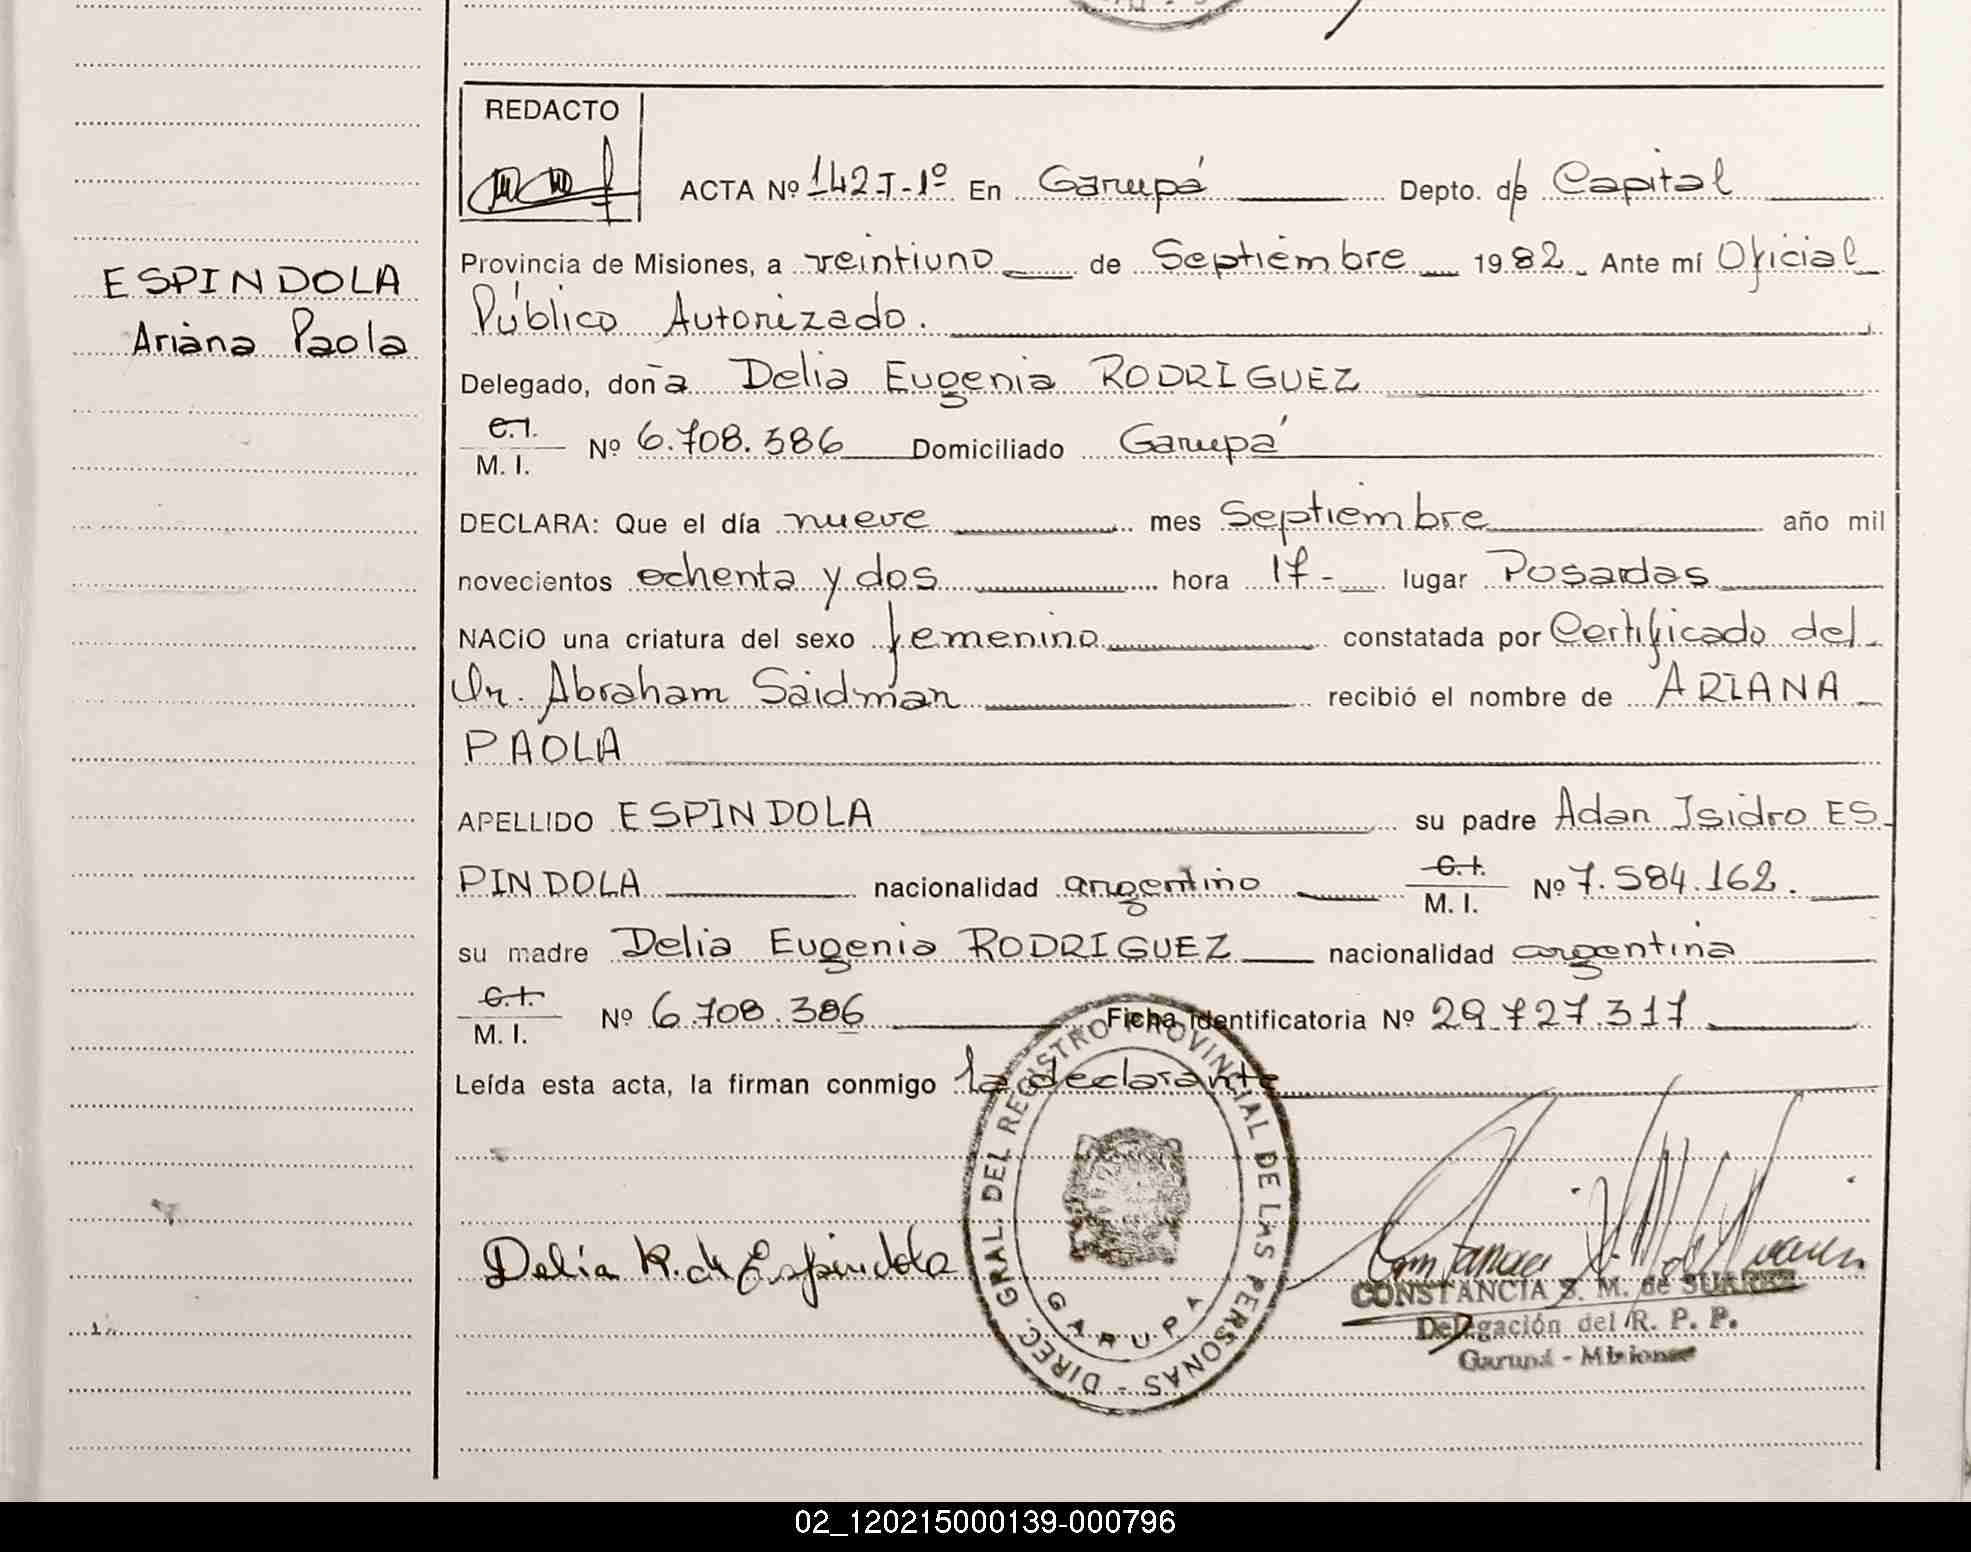 REDACTO
ACTA Nº 142-T-1º En Garupá Depto. de Capital
ESPINDOLA
Ariana Paola
Provincia de Misiones, a veintiuno de Septiembre 1982 Ante mí Oficial
Público Autorizado.
Delegado, doña Delia Eugenia RODRIGUEZ
C.I.
M. I. Nº 6.708.386 Domiciliado Garupá
DECLARA: Que el día nueve mes Septiembre año mil
novecientos ochenta y dos hora 17- lugar Posadas
NACiO una criatura del sexo femenino constatada por Certificado del
Dr. Abraham Saidman recibió el nombre de ARIANA
PAOLA
APELLIDO ESPINDOLA su padre Adan Isidro ES-
PINDOLA nacionalidad argentino C.I. M. I. Nº 7.584.162.
su madre Delia Eugenia RODRIGUEZ nacionalidad argentina
C.I.
M. I. Nº 6.708.386 Ficha identificatoria Nº 29.727.317
Leída esta acta, la firman conmigo la declarante
Delia R. de Espindola
DIREC. GRAL. DEL REGISTRO PROVINCIAL DE LAS PERSONAS -
GARUPA
CONSTANCIA S. M. de SUAREZ
Delegación del R. P. P.
Garupá - Misiones
02_120215000139-000796